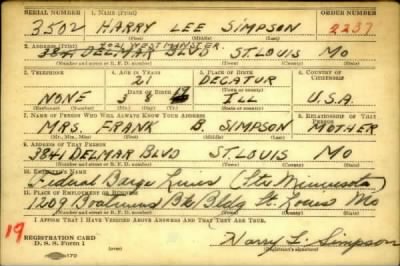 SERIAL NUMBER 1. NAME (Print) ORDER NUMBER
3502 HARRY LEE SIMPSON 2237
(First) (Middle) (Last)
2. ADDRESS (Print) 4021 WESTMINSTER
3841 DELMAR BLVD ST. LOUIS MO
(Number and street or R. F. D. number) (Town) (County) (State)
3. TELEPHONE 4. AGE IN YEARS 5. PLACE OF BIRTH 6. COUNTRY OF CITIZENSHIP
21 DECATUR
NONE 3 8 19 ILL U.S.A.
7. NAME OF PERSON WHO WILL ALWAYS KNOW YOUR ADDRESS 8. RELATIONSHIP OF THAT PERSON
MRS. FRANK B. SIMPSON MOTHER
(Mr., Mrs., Miss) (First) (Middle) (Last)
9. ADDRESS OF THAT PERSON
3841 DELMAR BLVD ST LOUIS MO
(Number and street or R. F. D. number) (Town) (County) (State)
10. EMPLOYER'S NAME
Federal Barge Lines (Str Minnesota)
11. PLACE OF EMPLOYMENT OR BUSINESS
1209 Boatmens Bk Bldg St. Louis Mo
(Number and street or R. F. D. number) (Town) (County) (State)
I AFFIRM THAT I HAVE VERIFIED ABOVE ANSWERS AND THAT THEY ARE TRUE.
19
REGISTRATION CARD
D. S. S. Form 1
Harry L. Simpson
(Registrant's signature)